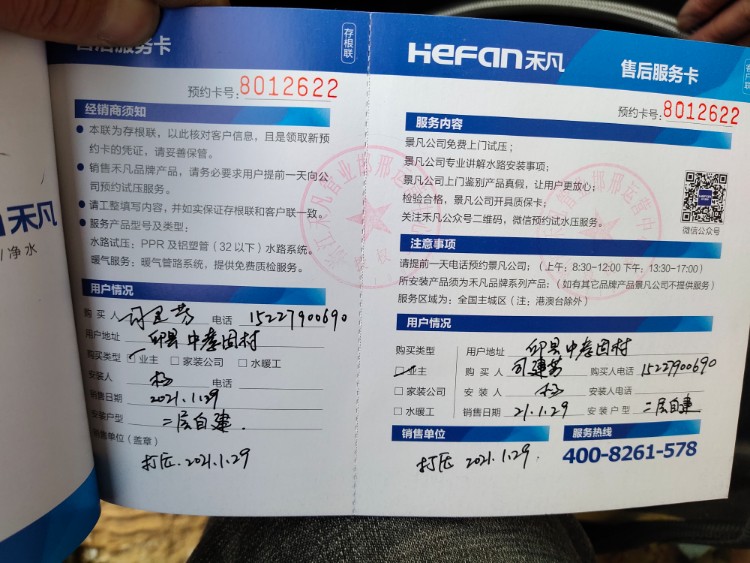 禾凡
/净水
售后服务卡
存根联
预约卡号:8012622
经销商须知
本联为存根联，以此核对客户信息，且是领取新预
约卡的凭证，请妥善保管。
销售禾凡品牌产品，请务必要求用户提前一天向公
司预约试压服务。
请工整填写内容，并如实保证存根联和客户联一致。
服务产品型号及类型:
水路试压: PPR 及铝塑管（32 以下）水路系统。
暖气服务: 暖气管路系统，提供免费质检服务。
用户情况
购 买 人 电话 15227900690
用户地址 邱县中孝固村
购买类型 ☑业主 □家装公司 □水暖工
安装人 杨 电话
销售日期 2021.1.29
安装户型 二层自建.
销售单位（盖章）
打压.2021.1.29
HEFan禾凡
售后服务卡
客户联
预约卡号:8012622
服务内容
景凡公司免费上门试压;
景凡公司专业讲解水路安装事项;
景凡公司上门鉴别产品真假，让用户更放心;
检验合格，景凡公司开具质保卡;
关注禾凡公众号二维码，微信预约试水压服务。
微信公众号
注意事项
请提前一天电话预约景凡公司;（上午: 8:30-12:00 下午: 13:30-17:00）
所安装产品须为禾凡品牌系列产品;（如有其它品牌产品景凡公司不提供服务）
服务区域为: 全国主城区（注: 港澳台除外）
用户情况
购买类型 用户地址 邱县中孝固村
☑业主 购 买 人 司建芳 购买人电话 15227900690
□家装公司 安 装 人 杨 安装人电话
□水暖工 销售日期 21.1.29 安装户型 二层自建
销售单位
服务热线
打压 2021.1.29.
400-8261-578